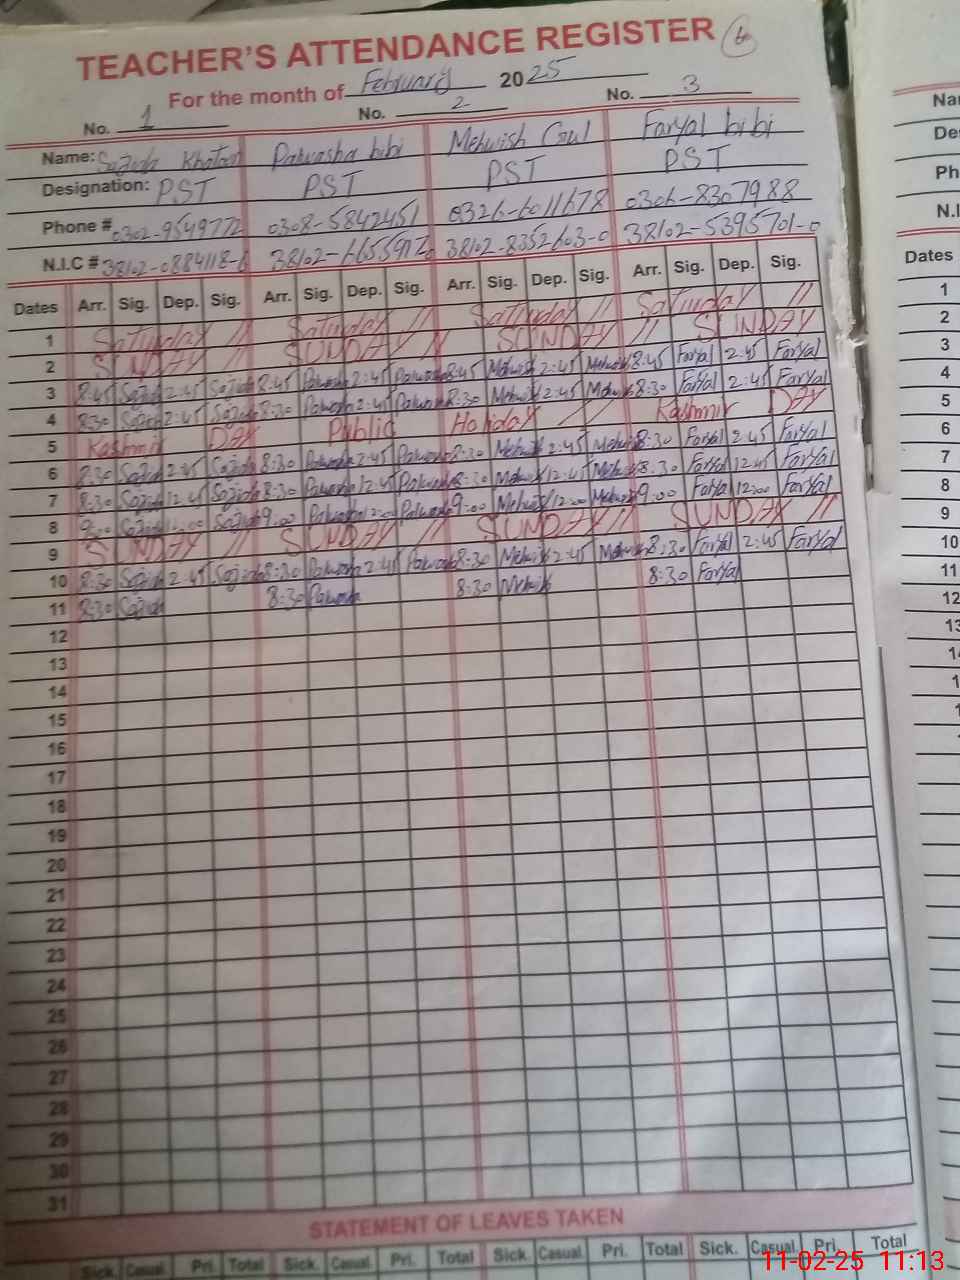 TEACHER'S ATTENDANCE REGISTER 6
For the month of February 2025
No. 1 No. 2 No. 3
Name: Sajida Khatoon Palwasha bibi Mehwish Gul Faryal bibi
Designation: PST PST PST PST
Phone # 0302-9549772 0308-5842451 0326-6011678 0306-8307988
N.I.C # 38102-0884118-6 38102-6655912 38102-8352603-0 38102-5395701-0
Dates Arr. Sig. Dep. Sig. Arr. Sig. Dep. Sig. Arr. Sig. Dep. Sig. Arr. Sig. Dep. Sig.
1 Saturday // Saturday // Saturday // Saturday //
2 SUNDAY // SUNDAY // SUNDAY // SUNDAY
3 8:45 Sajida 2:45 Sajida 8:45 Palwasha 2:45 Palwasha 8:45 Mehwish 2:45 Mehwish 8:45 Faryal 2:45 Faryal
4 8:30 Sajida 2:45 Sajida 8:30 Palwasha 2:45 Palwasha 8:30 Mehwish 2:45 Mehwish 8:30 Faryal 2:45 Faryal
5 Kashmir DAY Public Holiday Kashmir DAY
6 8:30 Sajida 2:45 Sajida 8:30 Palwasha 2:45 Palwasha 8:30 Mehwish 2:45 Mehwish 8:30 Faryal 2:45 Faryal
7 8:30 Sajida 12:45 Sajida 8:30 Palwasha 12:45 Palwasha 8:30 Mehwish 12:45 Mehwish 8:30 Faryal 12:45 Faryal
8 9:00 Sajida 12:00 Sajida 9:00 Palwasha 12:00 Palwasha 9:00 Mehwish 12:00 Mehwish 9:00 Faryal 12:00 Faryal
9 SUNDAY // SUNDAY // SUNDAY // SUNDAY //
10 8:30 Sajida 2:45 Sajida 8:30 Palwasha 2:45 Palwasha 8:30 Mehwish 2:45 Mehwish 8:30 Faryal 2:45 Faryal
11 8:30 Sajida 8:30 Palwasha 8:30 Mehwish 8:30 Faryal
12
13
14
15
16
17
18
19
20
21
22
23
24
25
26
27
28
29
30
31
STATEMENT OF LEAVES TAKEN
Sick Casual Pri. Total Sick. Casual Pri. Total Sick. Casual Pri. Total Sick. Casual. Pri. Total
Dates
1
2
3
4
5
6
7
8
9
10
11
12
13
11-02-25 11:13